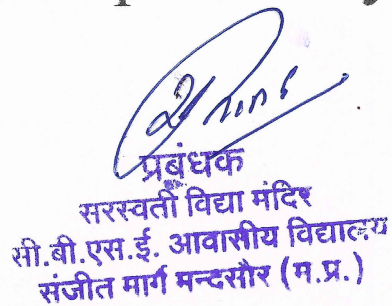 प्रबंधक
सरस्वती विद्या मंदिर
सी.बी.एस.ई. आवासीय विद्यालय
संजीत मार्ग मन्दसौर (म.प्र.)